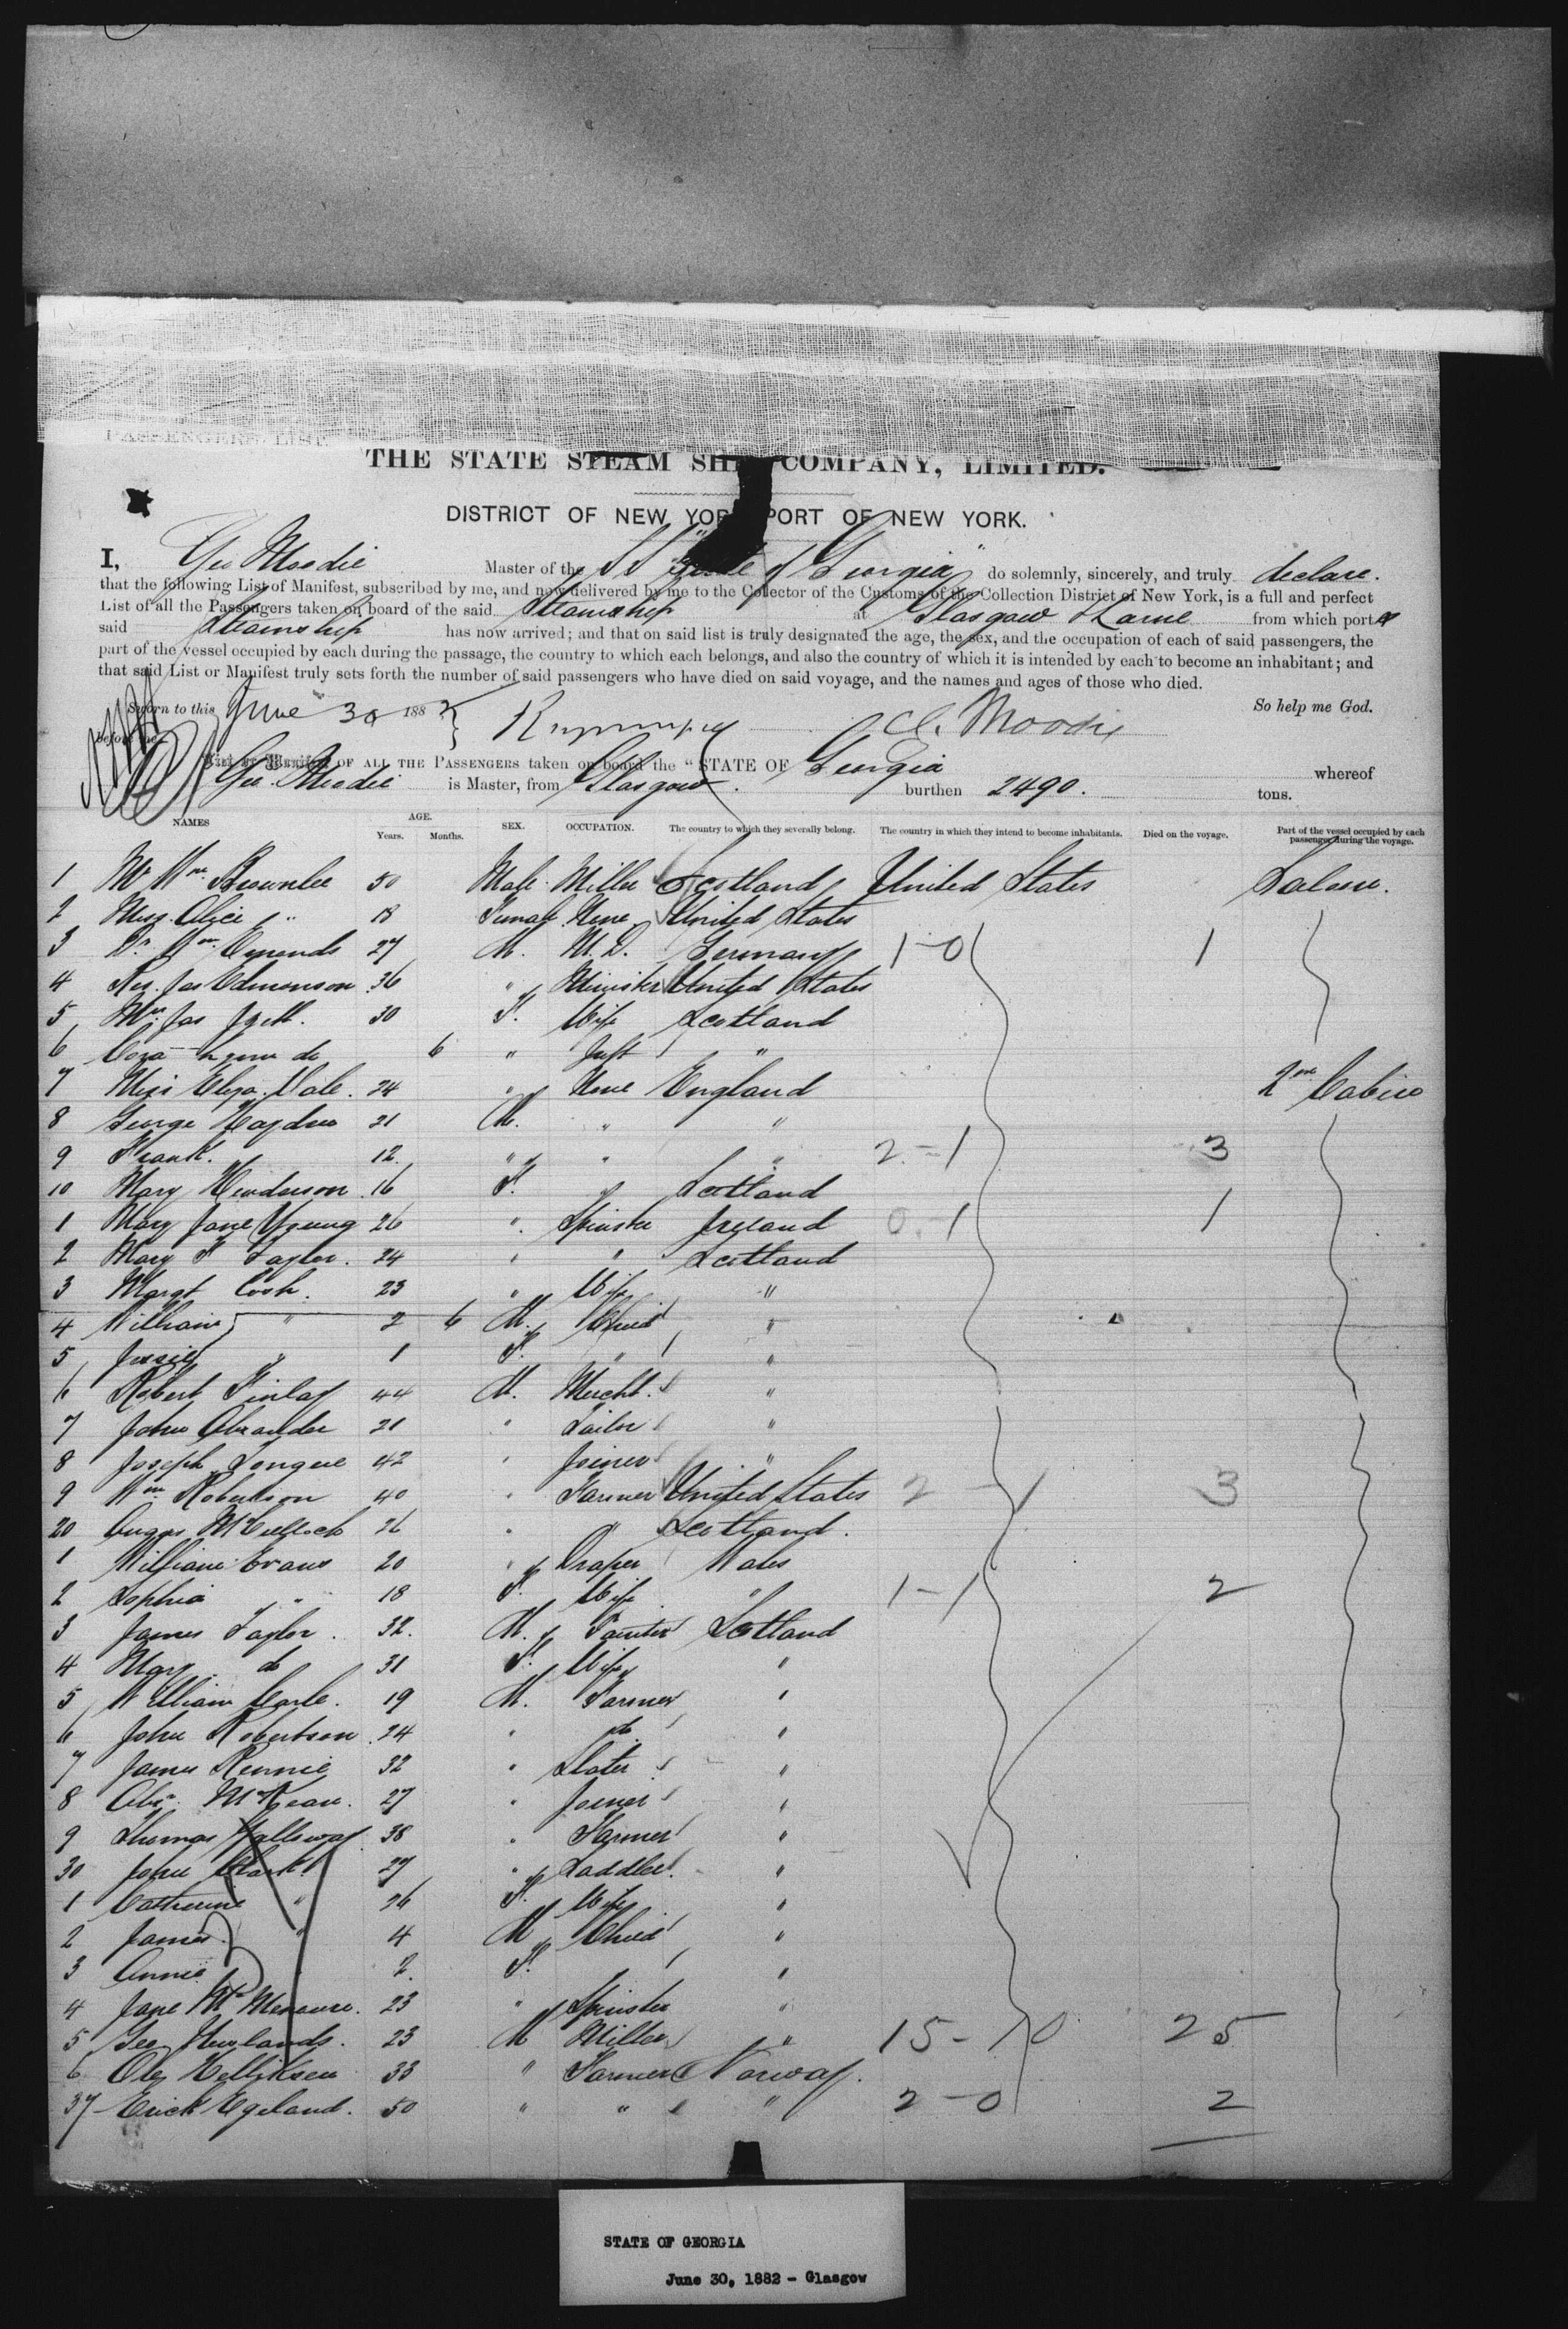 PASSENGERS LIST.
THE STATE STEAM SHIP COMPANY, LIMITED.
DISTRICT OF NEW YORK PORT OF NEW YORK.
I, Geo Moodie Master of the SS "State of Georgia" do solemnly, sincerely, and truly declare.
that the following List of Manifest, subscribed by me, and now delivered by me to the Collector of the Customs of the Collection District of New York, is a full and perfect
List of all the Passengers taken on board of the said Steamship at Glasgow & Larne from which port
said Steamship has now arrived; and that on said list is truly designated the age, the sex, and the occupation of each of said passengers, the
part of the vessel occupied by each during the passage, the country to which each belongs, and also the country of which it is intended by each to become an inhabitant; and
that said List or Manifest truly sets forth the number of said passengers who have died on said voyage, and the names and ages of those who died.
Sworn to this June 30 1882 So help me God.
before me G. Moodie
List or Manifest OF ALL THE PASSENGERS taken on board the "STATE OF Georgia whereof
Geo. Moodie is Master, from Glasgow. burthen 2490. tons.
NAMES AGE. Years. Months. SEX. OCCUPATION. The country to which they severally belong. The country in which they intend to become inhabitants. Died on the voyage. Part of the vessel occupied by each passenger during the voyage.
1 Mr Wm. Brownlee 50 Male Miller Scotland United States Saloon.
2 Miss Alice " 18 Female None United States
3 Dr. Wm. 27 M. M.D. Germany 1-0 1
4 Rev. Jas Edmonson 36 " Minister United States
5 Mrs. Jas 30 F. Wife Scotland
6 do 6 " Inft "
7 Miss Eliza Dale. 24 " None England 2nd Cabin
8 George 21 M. " "
9 Frank. " 12 " " " 2-1 3
10 Mary Henderson 16 F. " Scotland
1 Mary Jane Young 26 " Spinster Ireland 0-1 1
2 Mary F Taylor. 24 " " Scotland
3 Margt Cosh. 23 " Wife "
4 William " 2 6 M. Child "
5 Jessie " 1 F. " "
6 Robert Finlay 44 M. Mercht. "
7 John Alexander 21 " Tailor "
8 Joseph Longue 42 " Joiner "
9 Wm Robertson 40 " Farmer United States 2-1 3
20 Angus McCulloch 26 " " Scotland.
1 William Evans 20 " Draper Wales
2 Sophia " 18 F. Wife " 1-1 2
3 James Taylor. 32. M. Painter Scotland
4 Mary do 31 F. Wife "
5 William 19 M. Farmer "
6 John Robertson 24 " do "
7 James Rennie 32 " Slater "
8 Alexr. McKean. 27 " Joiner "
9 Thomas 38 " Farmer "
30 John Clark 27 " Saddler "
1 Catherine " 26 F. Wife "
2 James " 4 M Child "
3 Annie 2. F. "
4 Jane 23 " Spinster "
5 Geo Newlands. 23 M Miller " 15-10 25
6 Ole Helliksen 33 " Farmer Norway.
37 Erick Egeland. 50 " " " 2-0 2
STATE OF GEORGIA
June 30, 1882 - Glasgow